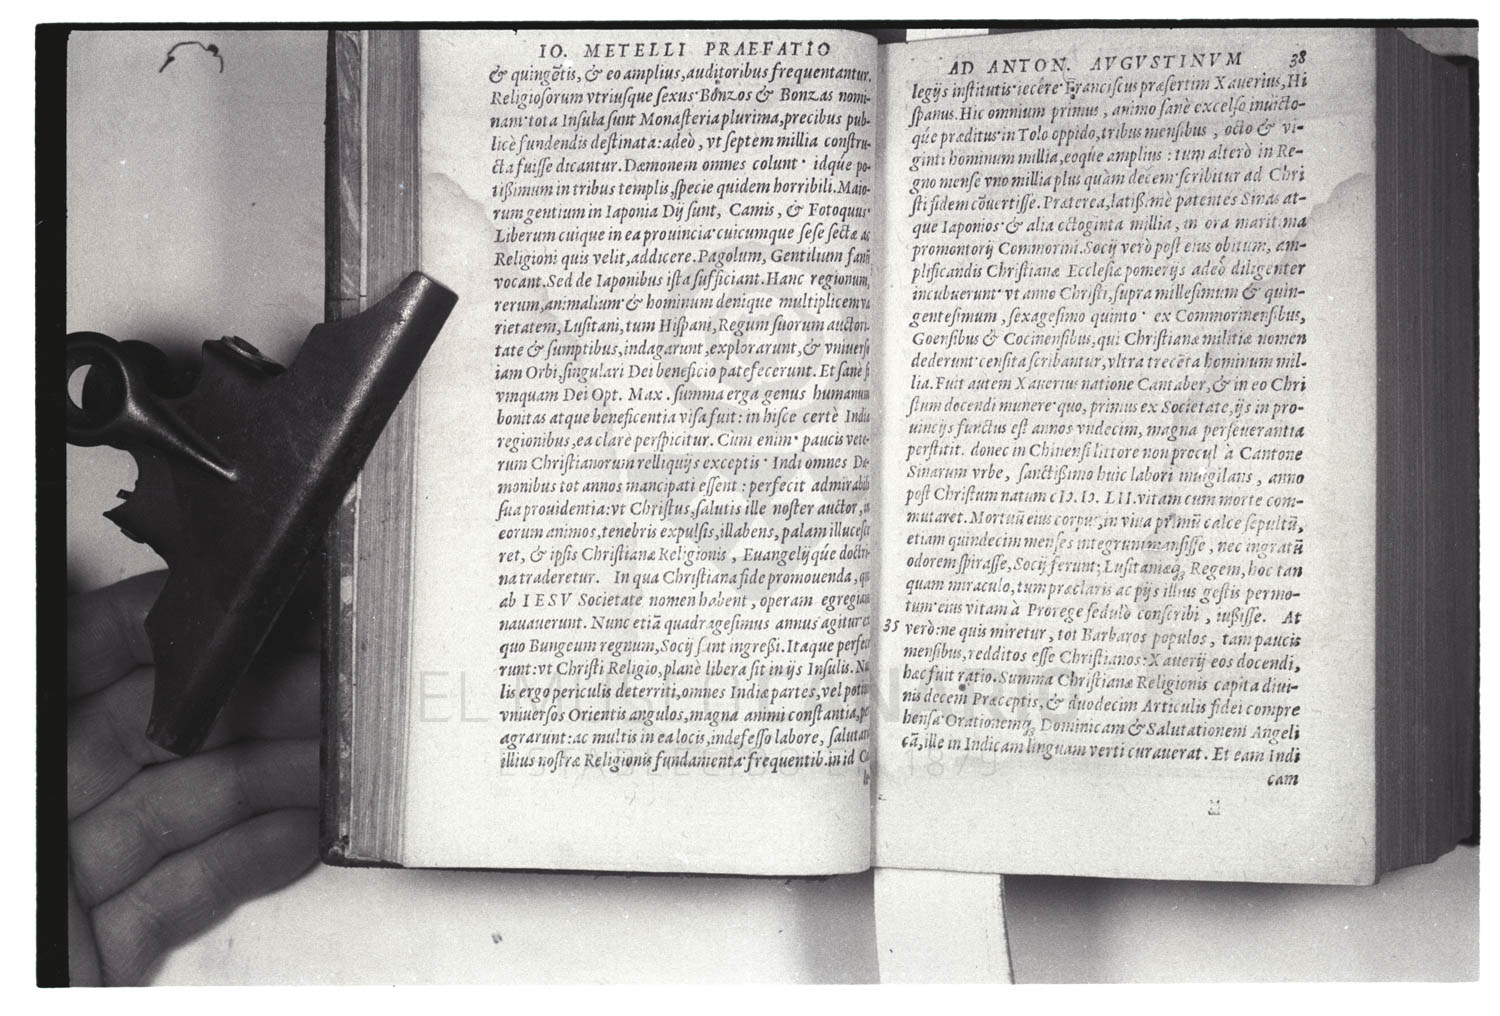 IO. METELLI PRAEFATIO
& quingẽtis, & eo amplius, auditoribus frequentantur.
Religiosorum vtriusque sexus Bonzos & Bonzas nomi-
nam tota Insula sunt Monasteria plurima, precibus pub-
licè fundendis destinata: adeò, vt septem millia constru-
cta fuisse dicantur. Dæmonem omnes colunt idque po-
tißimum in tribus templis, specie quidem horribili. Maio-
rum gentium in Iaponia Dij sunt, Camis, & Fotoquus
Liberum cuique in ea prouincia cuicumque sese sectæ ac
Religioni quis velit, addicere. Pagolum, Gentilium fanũ
vocant. Sed de Iaponibus ista sufficiant. Hanc regionum,
rerum, animalium & hominum denique multiplicem va
rietatem, Lusitani, tum Hispani, Regum suorum auctori
tate & sumptibus, indagarunt, explorarunt, & vniuerso
iam Orbi, singulari Dei beneficio patefecerunt. Et sanè si
vmquam Dei Opt. Max. summa erga genus humanum
bonitas atque beneficentia visa fuit: in hisce certè Indiæ
regionibus, ea clarè perspicitur. Cum enim paucis vete-
rum Christianorum relliquijs exceptis Indi omnes Dæ-
monibus tot annos mancipati essent: perfecit admirabili
sua prouidentia: vt Christus, salutis ille noster auctor, in
eorum animos, tenebris expulsis, illabens, palam illucesce
ret, & ipsis Christianæ Religionis, Euangelijque doctri-
na traderetur. In qua Christiana fide promouenda, qui
ab IESV Societate nomen habent, operam egregiam
nauauerunt. Nunc etiã quadragesimus annus agitur ex
quo Bungeum regnum, Socij sunt ingreßi. Itaque perfece
runt: vt Christi Religio, planè libera sit in ijs Insulis. Nul
lis ergo periculis deterriti, omnes Indiæ partes, vel potius
vniuersos Orientis angulos, magna animi constantia, pe
agrarunt: ac multis in ea locis, indefesso labore, salutaris
illius nostræ Religionis fundamenta frequentib. in id Co
le
AD ANTON. AVGVSTINVM 38
legijs institutis iecêre Franciscus præsertim Xauerius, Hi
spanus. Hic omnium primus, animo sanè excelso inuicto-
qúe præditus in Tolo oppido, tribus mensibus, octo & vi-
ginti hominum millia, eoqúe amplius: tum alterò in Re-
gno mense vno millia plus quàm decem scribitur ad Chri
sti fidem cõuertisse. Præterea, latiß. mè patentes Sinas at-
que Iaponios & alia octoginta millia, in ora maritima
promontorij Commorini. Socij verò post eius obitum, am-
plificandis Christianæ Ecclesiæ pomerijs adeò diligenter
incubuerunt vt anno Christi, supra millesimum & quin-
gentesimum, sexagesimo quinto ex Commorinensibus,
Goensibus & Cocinensibus, qui Christianæ militiæ nomen
dederunt censita scribantur, vltra trecẽta hominum mil-
lia. Fuit autem Xauerius natione Cantaber, & in eo Chri
stum docendi munere quo, primus ex Societate, ijs in pro-
uincijs functus est annos vndecim, magna perseuerantia
perstitit. donec in Chinensi littore non procul à Cantone
Sinarum vrbe, sanctißimo huic labori inuigilans, anno
post Christum natum cIɔ. Iɔ. LII. vitam cum morte com-
mutaret. Mortuũ eius corpus, in viua primũ calce sepultũ,
etiam quindecim menses integrum mansisse, nec ingratũ
odorem spirasse, Socij ferunt; Lusitaniæq; Regem, hoc tan
quam miraculo, tum præclaris ac pijs illius gestis permo-
tum eius vitam à Prorege sedulò conscribi, iußisse. At
35 verò: ne quis miretur, tot Barbaros populos, tam paucis
mensibus, redditos esse Christianos: Xauerij eos docendi,
hæc fuit ratio. Summa Christianæ Religionis capita diui-
nis decem Præceptis, & duodecim Articulis fidei compre
hensa Orationemq; Dominicam & Salutationem Angeli
cã, ille in Indicam linguam verti curauerat. Et eam Indi
cam
EL
ESTABLECIDO EN 1879